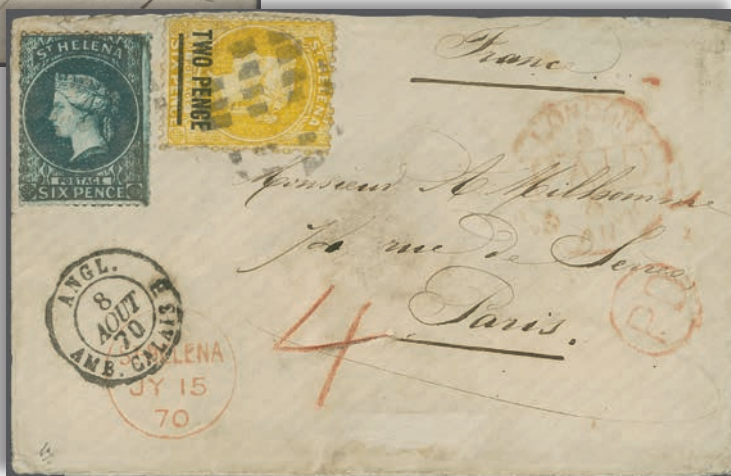 ST HELENA
POSTAGE
SIX PENCE
ST HELENA
TWO PENCE
France
LONDON
Monsieur A Milhomme
rue de Sèvres
Paris.
PD
4
ANGL.
8
AOUT
70
AMB. CALAIS E
ST HELENA
JY 15
70